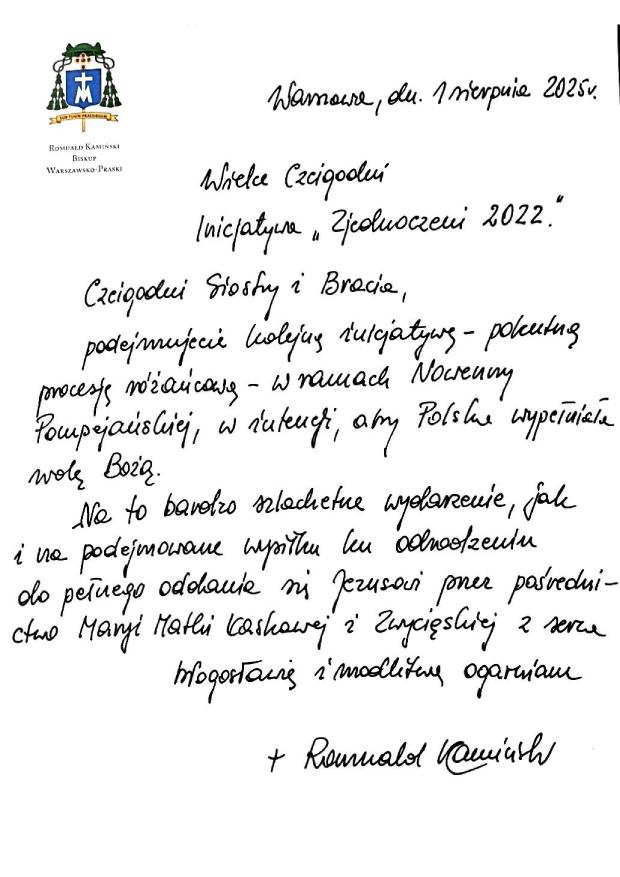 SUB TUUM PRAESIDIUM
ROMUALD KAMIŃSKI
BISKUP
WARSZAWSKO-PRASKI
Warszawa, dn. 1 sierpnia 2025r.
Wielce Czcigodni
Inicjatywa „Zjednoczeni 2022."
Czcigodni Siostry i Bracia,
podejmujecie kolejną inicjatywę – pokutną
procesję różańcową – w ramach Nowenny
Pompejańskiej, w intencji, aby Polska wypełniała
wolę Bożą.
Na to bardzo szlachetne wydarzenie, jak
i na podejmowane wysiłki ku odrodzeniu
do pełnego oddania się Jezusowi przez pośredni-
ctwo Maryi Matki Łaskawej i Zwycięskiej z serca
błogosławię i modlitwą ogarniam
+ Romuald Kamiński